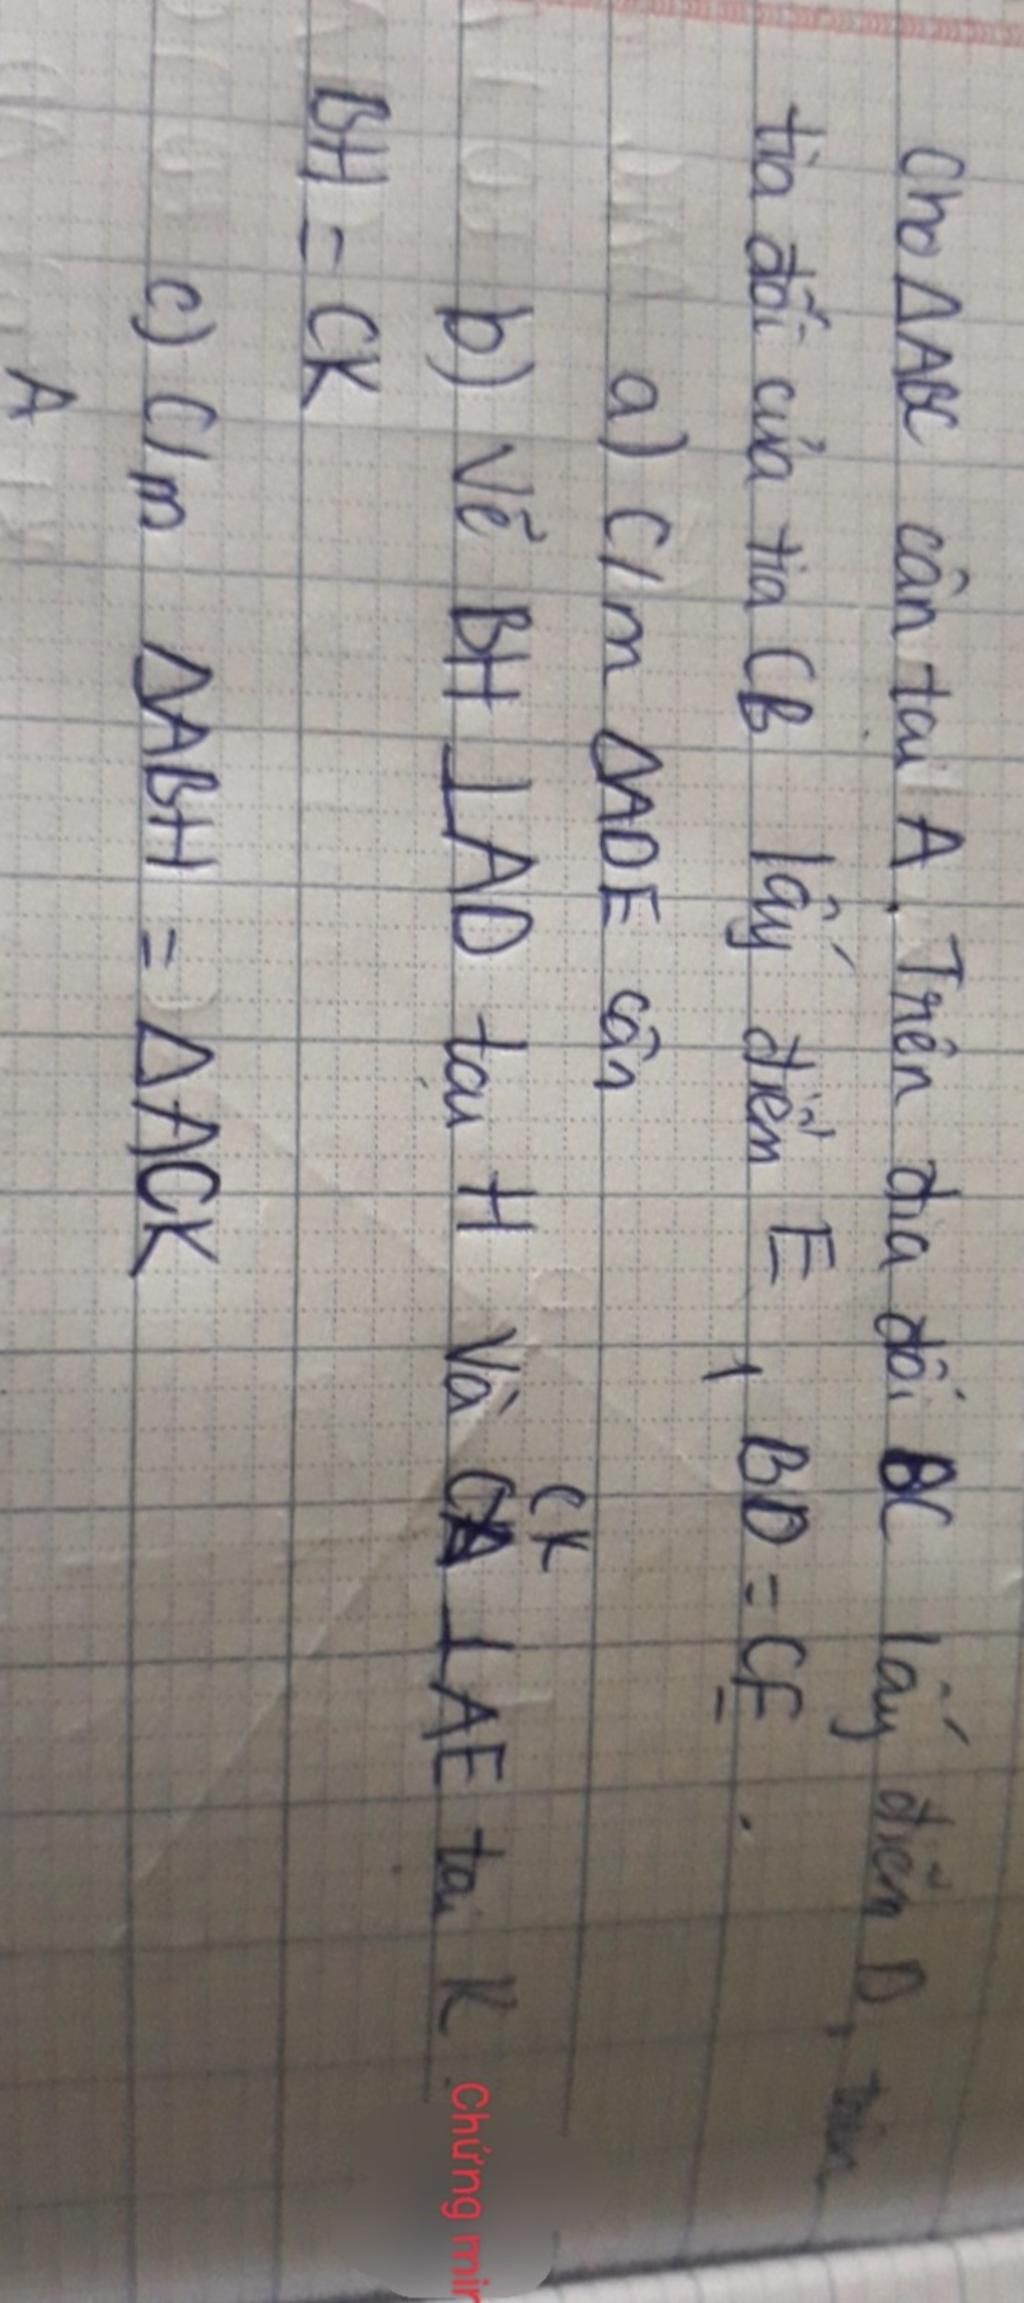 Cho ΔABC cân tại A. Trên đia đối BC lấy điểm D, trên
tia đối của tia CB lấy điểm E, BD = CE.
a) C/m ΔADE cân
CK
b) Vẽ BH ⊥ AD tại H Và ⊥ AE tại K Chứng min
BH = CK
c) C/m ΔABH = ΔACK
A